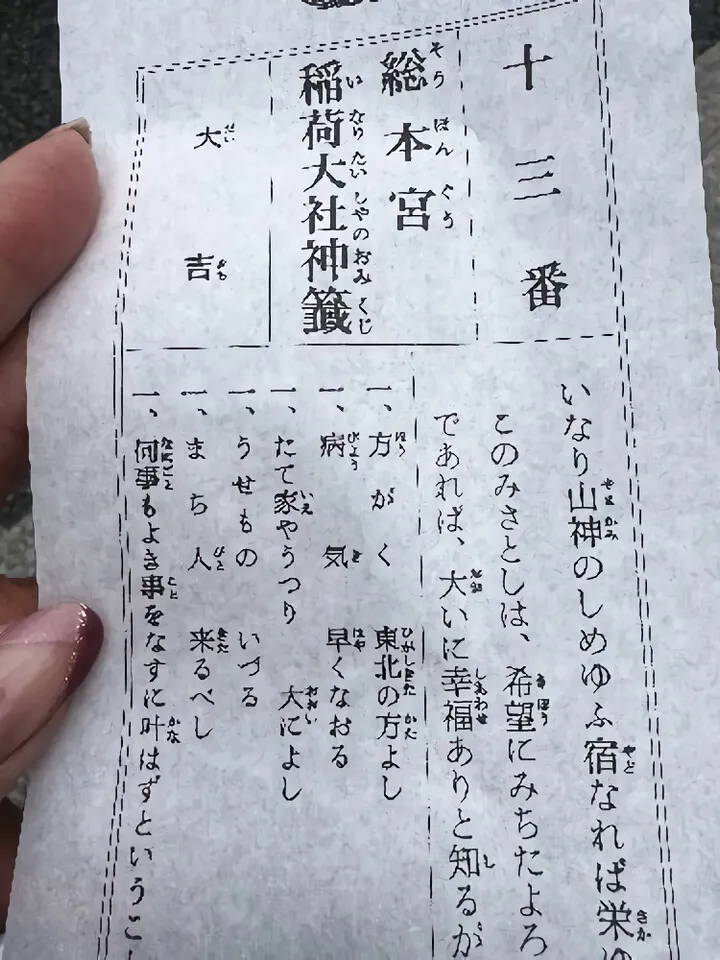 十三番
総本宮
稲荷大社神籤
大吉
いなり山神のしめゆふ宿なれば栄ゆ
このみさとしは、希望にみちたよろ
であれば、大いに幸福ありと知るが
一、方がく 東北の方よし
一、病気 早くなおる
一、たて家やうつり 大によし
一、うせもの いづる
一、まち人 来るべし
一、何事もよき事をなすに叶はずというこ